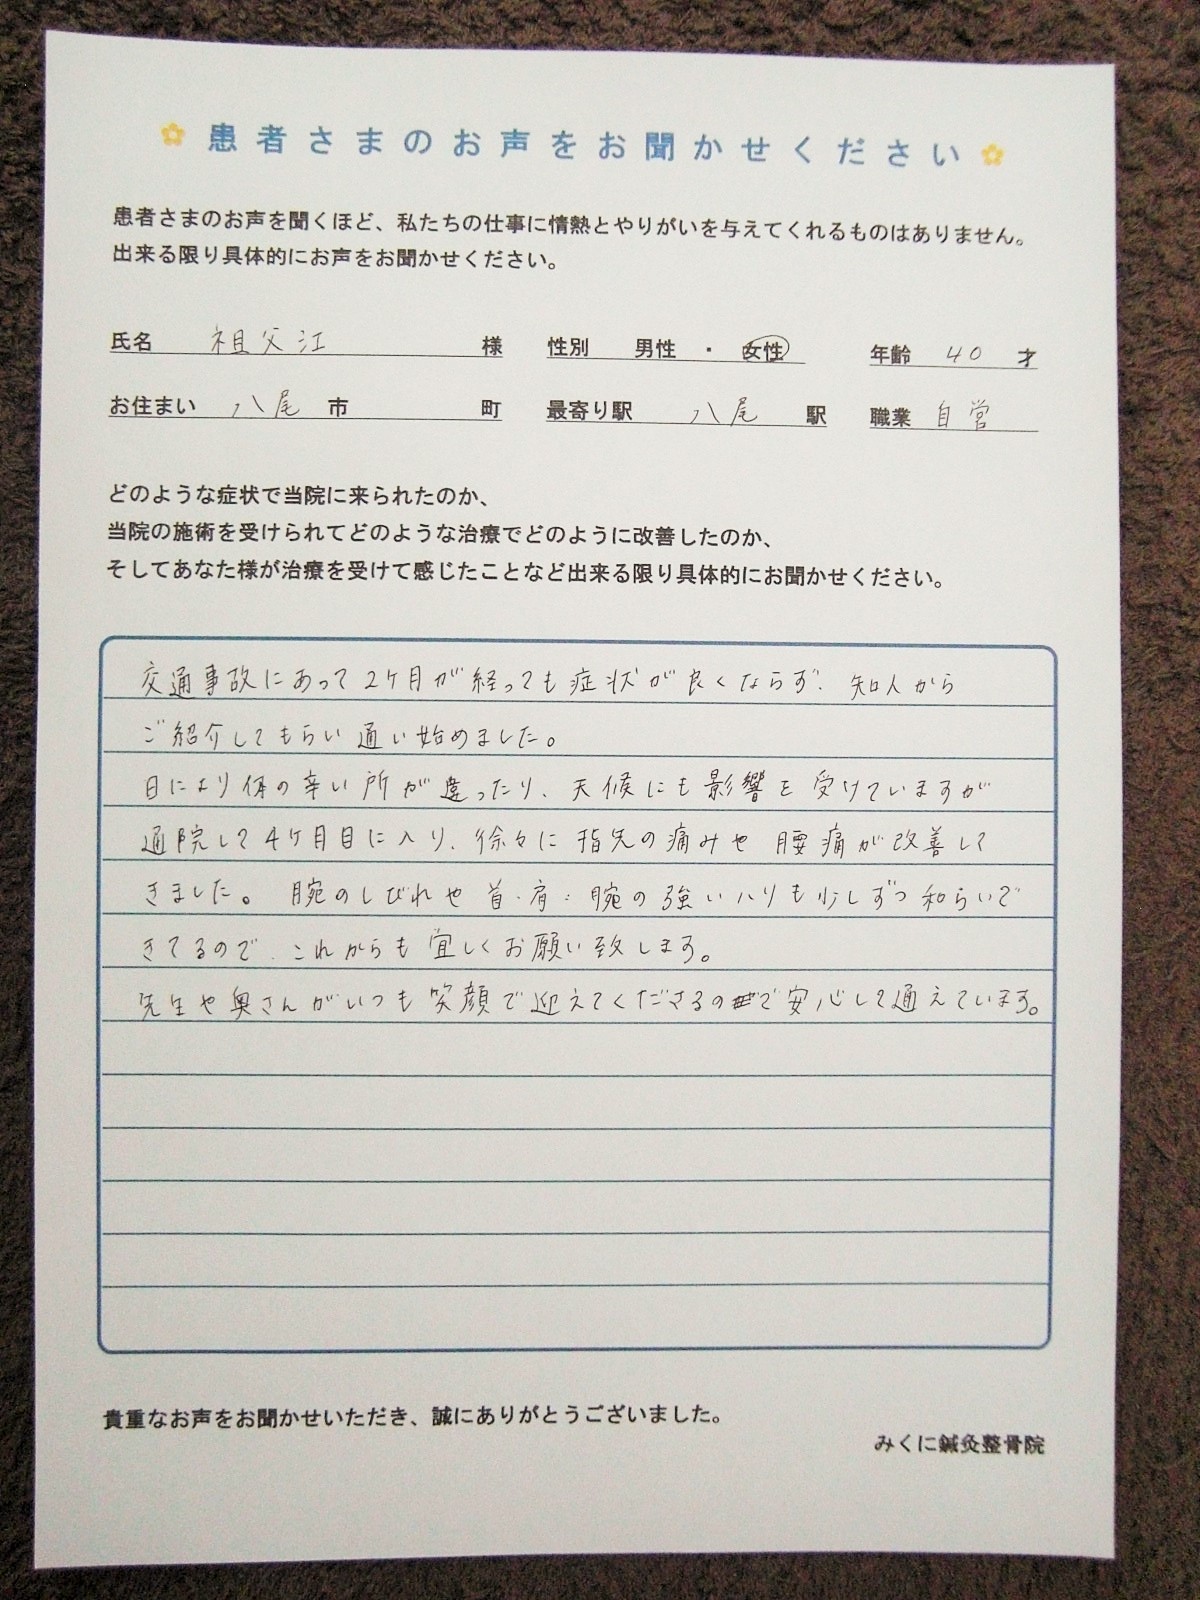 患者さまのお声をお聞かせください
患者さまのお声を聞くほど、私たちの仕事に情熱とやりがいを与えてくれるものはありません。
出来る限り具体的にお声をお聞かせください。
氏名 祖父江 様 性別 男性 ・ 女性 年齢 40 才
お住まい 八尾 市 町 最寄り駅 八尾 駅 職業 自営
どのような症状で当院に来られたのか、
当院の施術を受けられてどのような治療でどのように改善したのか、
そしてあなた様が治療を受けて感じたことなど出来る限り具体的にお聞かせください。
交通事故にあって2ケ月が経っても症状が良くならず、知人から
ご紹介してもらい通い始めました。
日により体の辛い所が違ったり、天候にも影響を受けていますが
通院して4ケ月目に入り、徐々に指先の痛みや腰痛が改善して
きました。腕のしびれや首・肩・腕の強いハリも少しずつ和らいで
きてるので、これからも宜しくお願い致します。
先生や奥さんがいつも笑顔で迎えてくださるので安心して通えています。
貴重なお声をお聞かせいただき、誠にありがとうございました。
みくに鍼灸整骨院